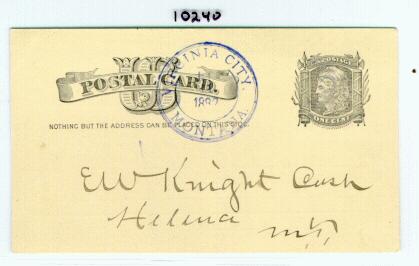 10240
VIRGINIA CITY,
1882
MONTANA
POSTAL CARD.
U S
POSTAGE
ONE CENT
NOTHING BUT THE ADDRESS CAN BE PLACED ON THIS SIDE.
EW Knight Cash
Helena
M.T.